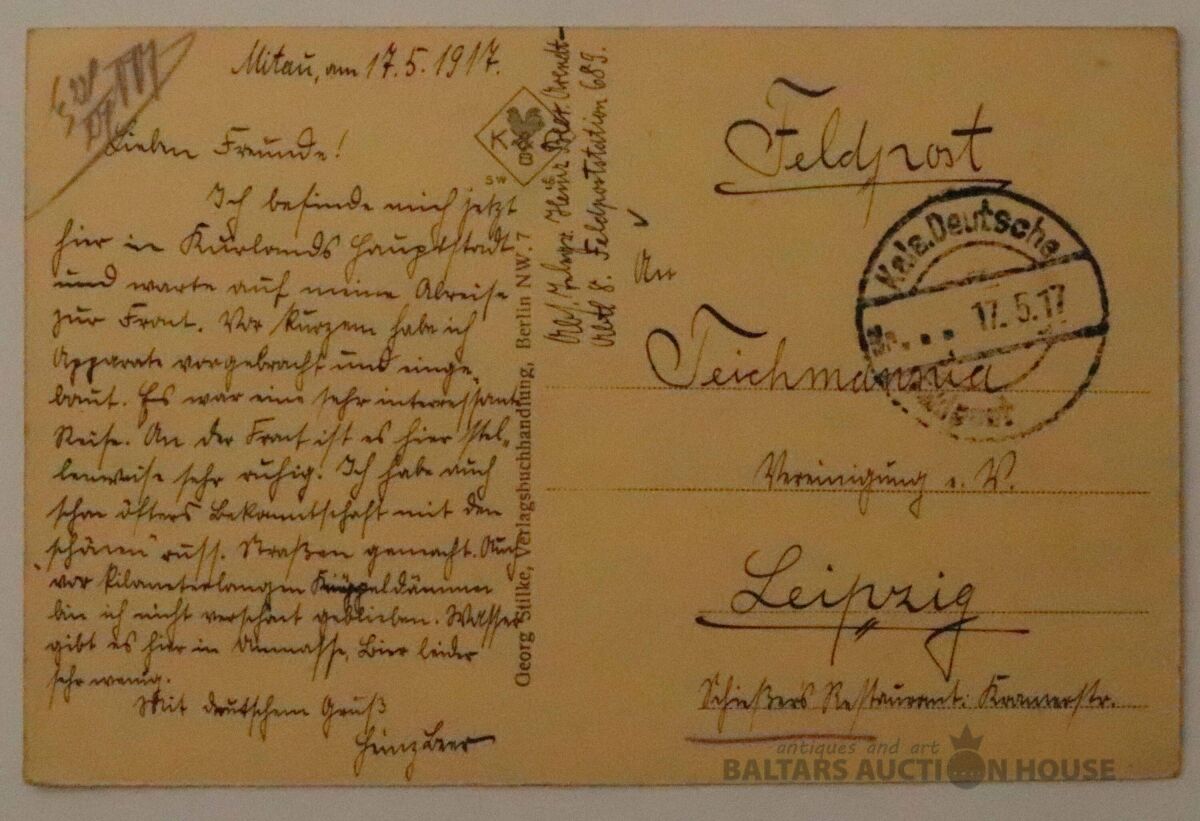 Mitau, am 17.5.1917.
Lieben Freunde!
Ich befinde mich jetzt
hier in Kurlands Hauptstadt
und warte auf meine Abreise
zur Front. Vor kurzem habe ich
Apparate vorgebracht und einge-
baut. Es war eine sehr interressante
Reise. An der Front ist es hier stel-
lenweise sehr ruhig. Ich habe auch
schon öfters Bekanntschaft mit den
„schönen" russ. Straßen gemacht. Auch
vor kilometerlangen Knüppeldämmen
bin ich nicht verschont geblieben. Wasser
gibt es hier in Unmasse, Bier leider
sehr wenig.
Mit deutschem Gruß
Heinz Beer
K
SW
Georg Stilke, Verlagsbuchhandlung, Berlin NW. 7
Heinz Beer. Arendt-
Abtl 8. Feldpoststation 689.
Feldpost
An
Teichmannia
Vereinigung e. V.
Leipzig
Schießers Restaurant: Kramerstr.
Deutsche
17.5.17
antiques and art
BALTARS AUCTION HOUSE